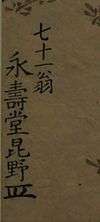 七十一翁
永壽堂昆野皿